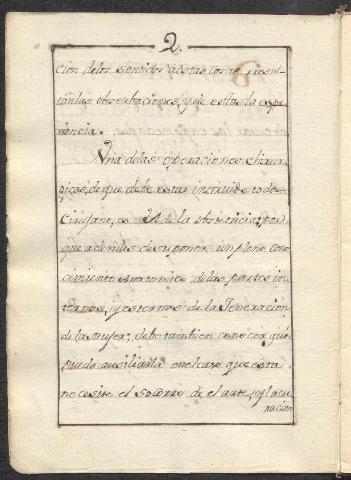 2.
cion delos sentidos aestas cosas resul-
tan las observaciones, y de estas la espe-
riencia.
Una delas operaciones Chirur-
gicas, de que debe estar instruido todo
Cirujano, es la de la obstetricia; por
que ademas de suponer un pleno cono-
cimiento anatomico delas partes in-
ternas, y esternas de la Generacion
de la muger, debe tambien conocer que
pueda ausiliarla enel caso que esta
necesite el socorro de el arte, y la cu-
racion